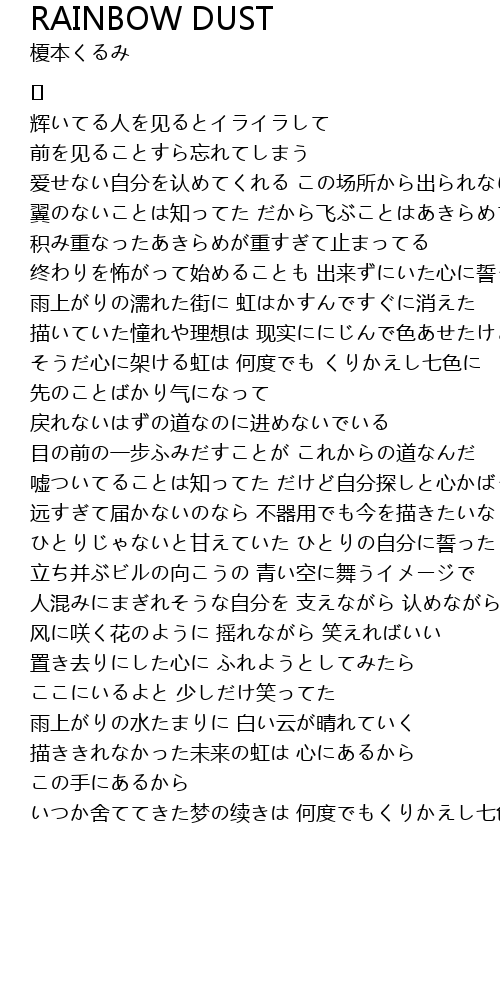 RAINBOW DUST
榎本くるみ
[]
辉いてる人を见るとイライラして
前を见ることすら忘れてしまう
爱せない自分を认めてくれる この场所から出られない
翼のないことは知ってた だから飞ぶことはあきらめて
积み重なったあきらめが重すぎて止まってる
终わりを怖がって始めることも 出来ずにいた心に誓
雨上がりの濡れた街に 虹はかすんですぐに消えた
描いていた憧れや理想は 现实ににじんで色あせたけ
そうだ心に架ける虹は 何度でも くりかえし七色に
先のことばかり气になって
戻れないはずの道なのに进めないでいる
目の前の一步ふみだすことが これからの道なんだ
嘘ついてることは知ってた だけど自分探しと心かば
远すぎて届かないのなら 不器用でも今を描きたいな
ひとりじゃないと甘えていた ひとりの自分に誓った
立ち并ぶビルの向こうの 青い空に舞うイメージで
人混みにまぎれそうな自分を 支えながら 认めながら
风に咲く花のように 摇れながら 笑えればいい
置き去りにした心に ふれようとしてみたら
ここにいるよと 少しだけ笑ってた
雨上がりの水たまりに 白い云が晴れていく
描ききれなかった未来の虹は 心にあるから
この手にあるから
いつか舍ててきた梦の续きは 何度でもくりかえし七色